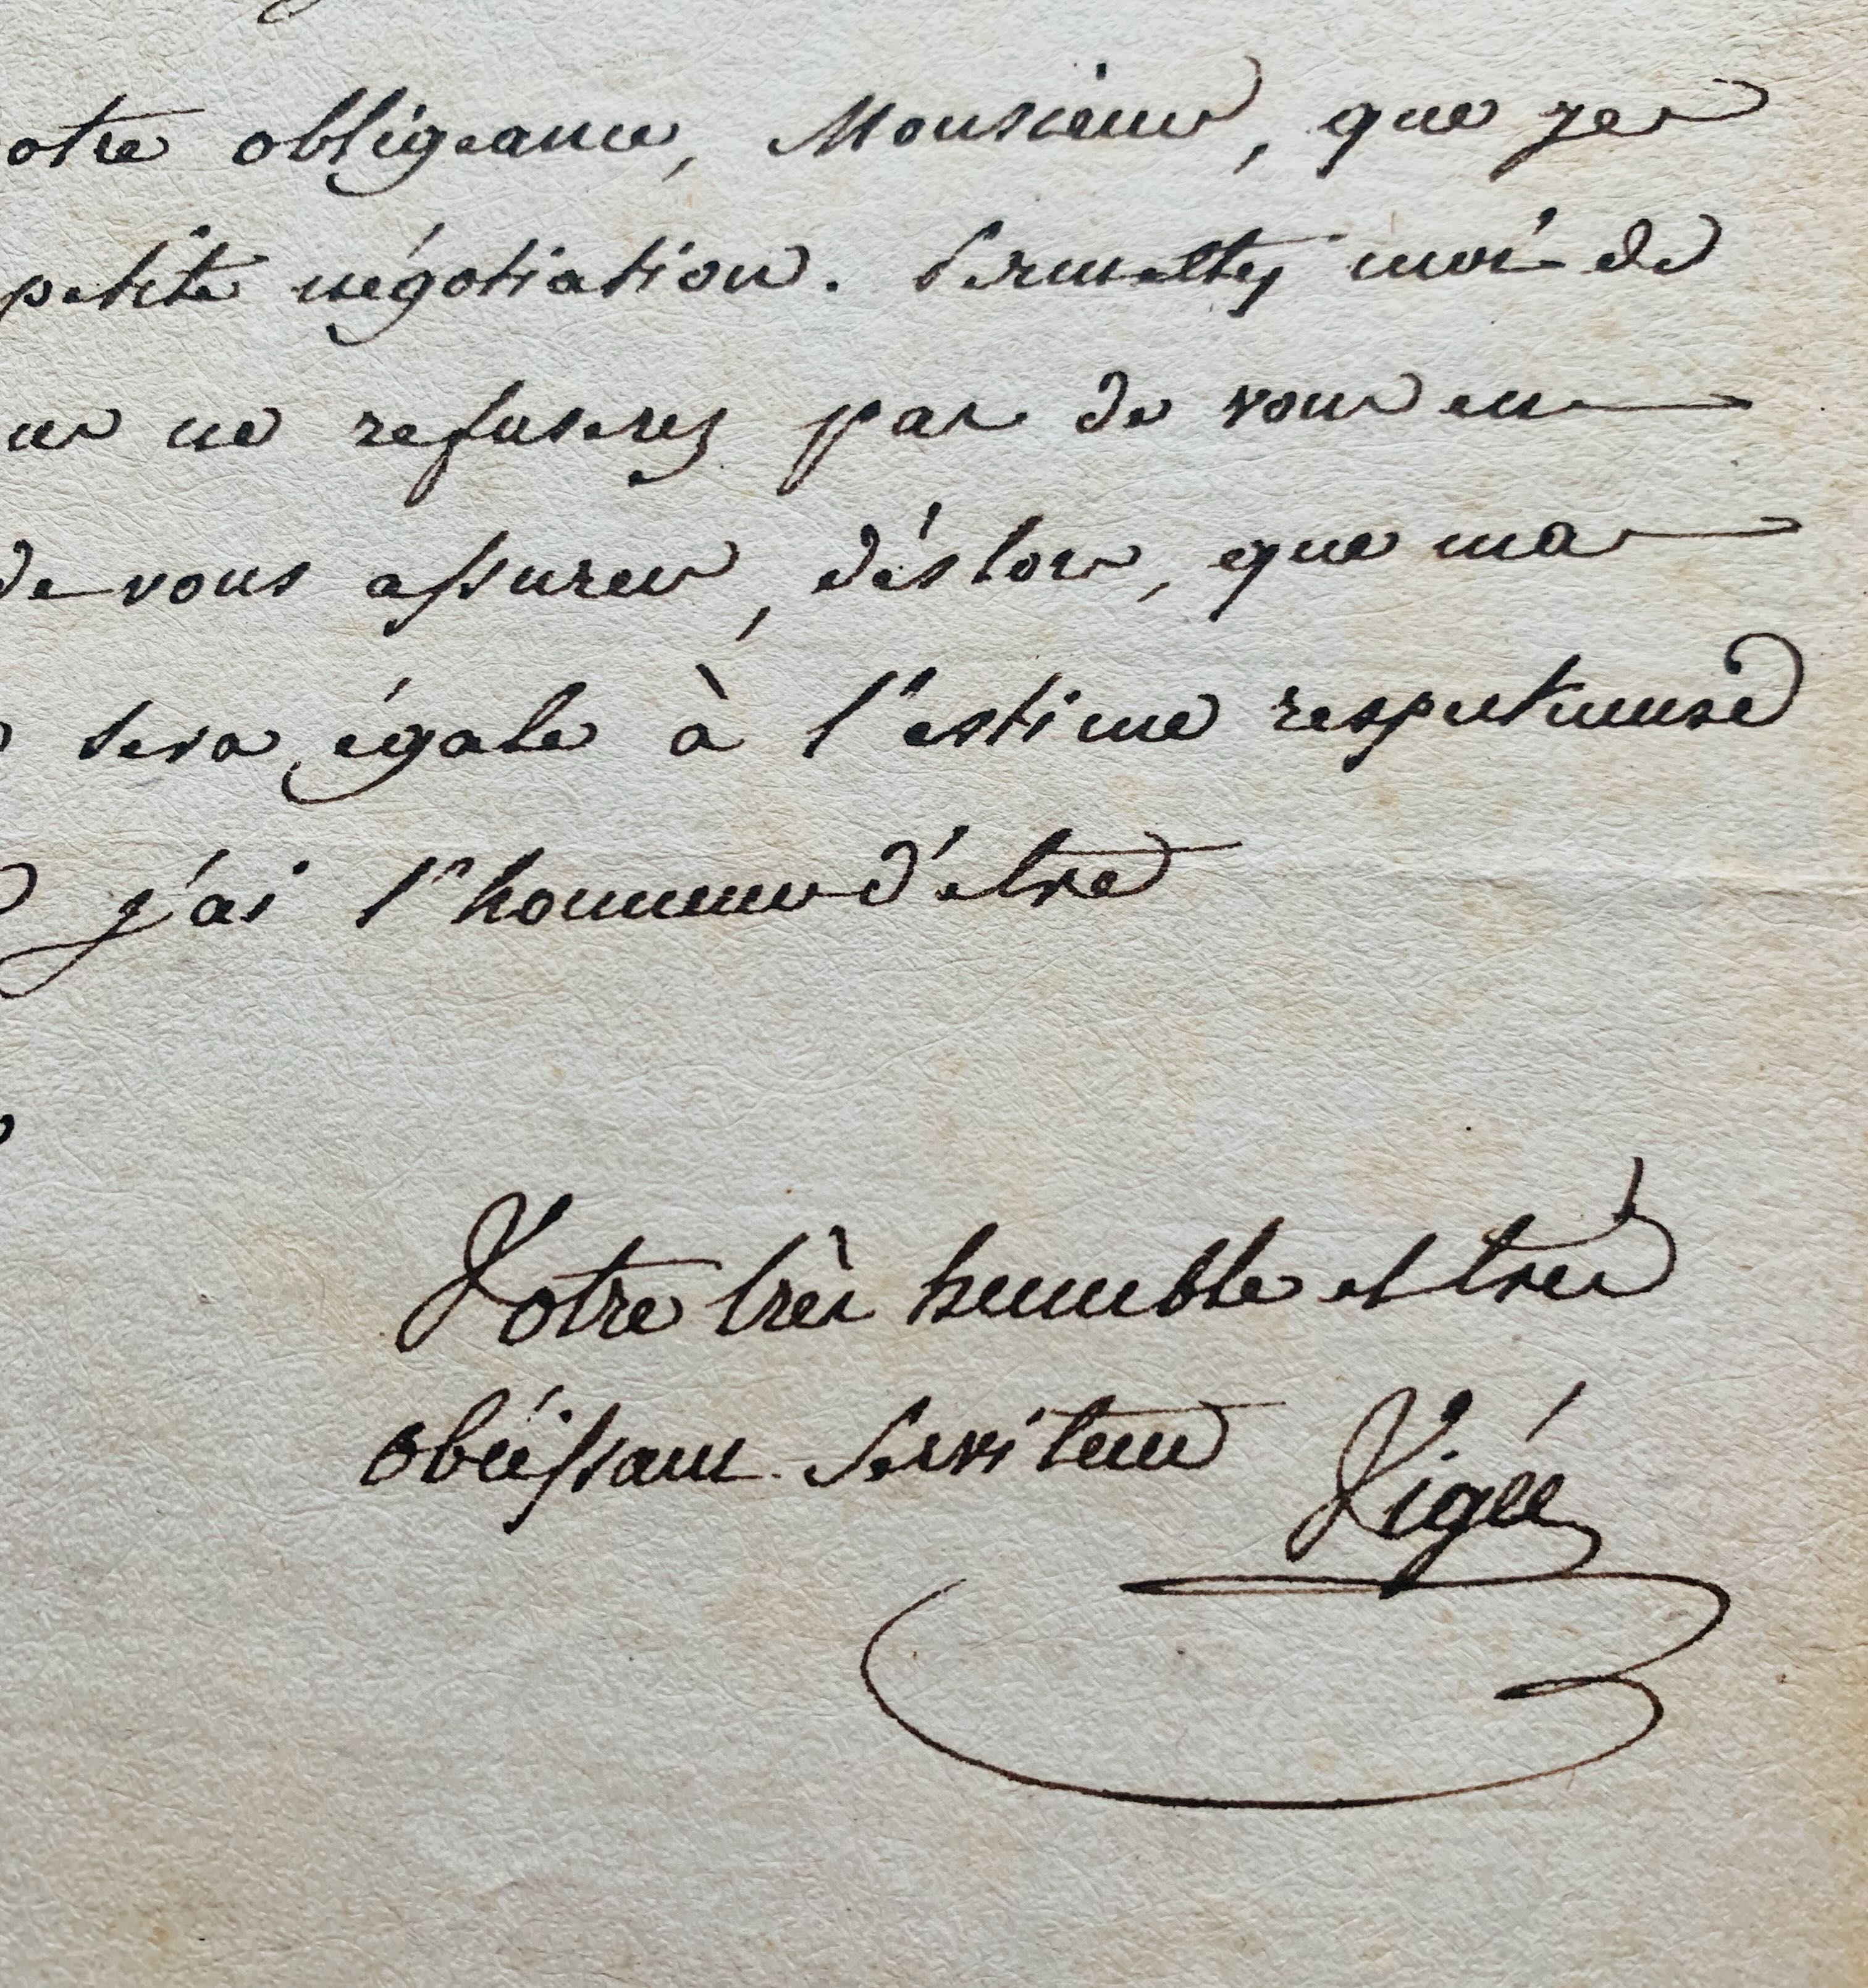 otre obligeance, Monsieur, que je
petite négotiation. Permettez moi de
ne refuserez pas de vous en
de vous assurer, déslors, que ma
sera égale à l'estime respectueuse
j'ai l'honneur d'etre
Votre très humble et tres
obéissant Serviteur Vigée